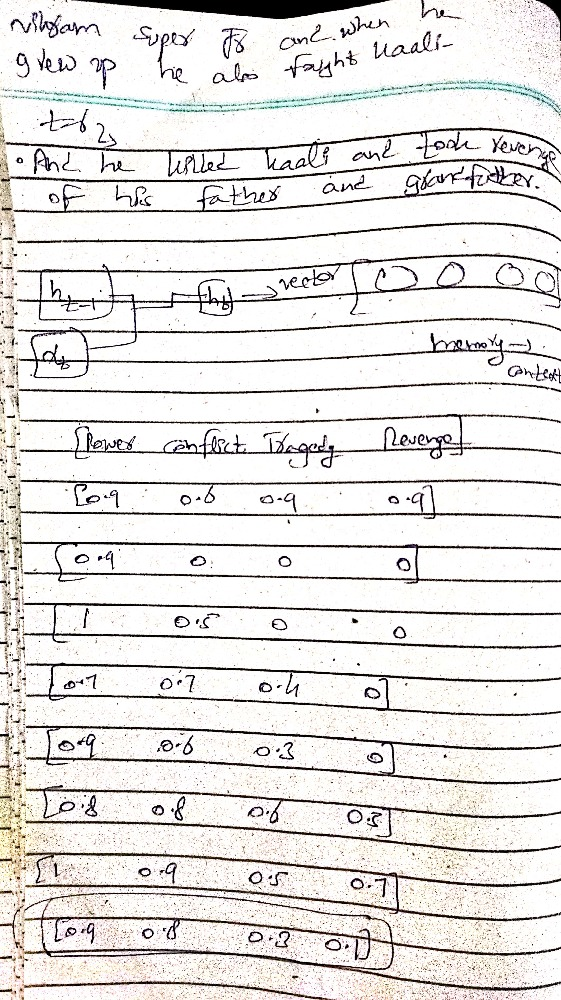 Vikram super Jr and when he
grew up he also faught Kaali-
t=6
• And he killed kaali and took revenge
of his father and grandfather.
h t-1 ht → vector [
xt
memory →
context
[Power conflict Tragedy Revenge]
[0.9 0.6 0.9 0.9]
[0.9 0 0 0]
[1 0.5 0 0]
[0.7 0.7 0.4 0]
[0.9 0.6 0.3 0]
[0.8 0.8 0.6 0.3]
[1 0.9 0.5 0.7]
[0.9 0.8 0.3 0.1]